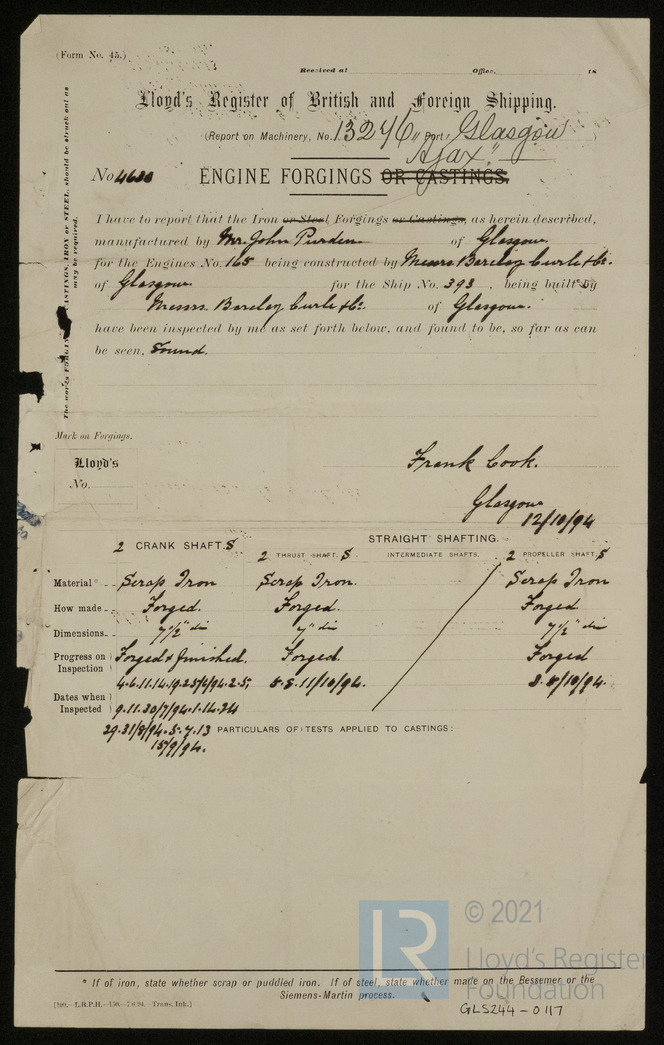 (Form No. 45.)
Received at Office. 18
Lloyd's Register of British and Foreign Shipping.
(Report on Machinery, No. 13246 Port Glasgow
"Ajax"
No 4680 ENGINE FORGINGS OR CASTINGS.
I have to report that the Iron or Steel Forgings or Castings, as herein described,
manufactured by Mr. John Purden of Glasgow
for the Engines No. 165 being constructed by Messrs Barclay Curle & Co.
of Glasgow for the Ship No. 393, being built by
Messrs. Barclay Curle & Co. of Glasgow.
have been inspected by me as set forth below, and found to be, so far as can
be seen, Sound.
CASTINGS, IRON or STEEL, should be struck out as
may be required.
Mark on Forgings.
Lloyd's
No.
Frank Cook.
Glasgow
12/10/94
STRAIGHT SHAFTING.
2 CRANK SHAFT.S 2 THRUST SHAFT. S INTERMEDIATE SHAFTS. 2 PROPELLER SHAFT.S
Material* Scrap Iron Scrap Iron. Scrap Iron
How made Forged. Forged. Forged
Dimensions 7½" die 7½" di
Progress on Inspection Forged & finished. Forged. Forged
5.8.11/10/94. 8/10/94.
Dates when Inspected 9.11.20/7/94.1.14.24
29.31/8/94.5.7.13
15/9/94.
PARTICULARS OF TESTS APPLIED TO CASTINGS:
* If of iron, state whether scrap or puddled iron. If of steel, state whether made on the Bessemer or the
Siemens-Martin process.
Trans. Ink.]
LR
© 2021
Lloyd's Register
Foundation
GLS244-0117